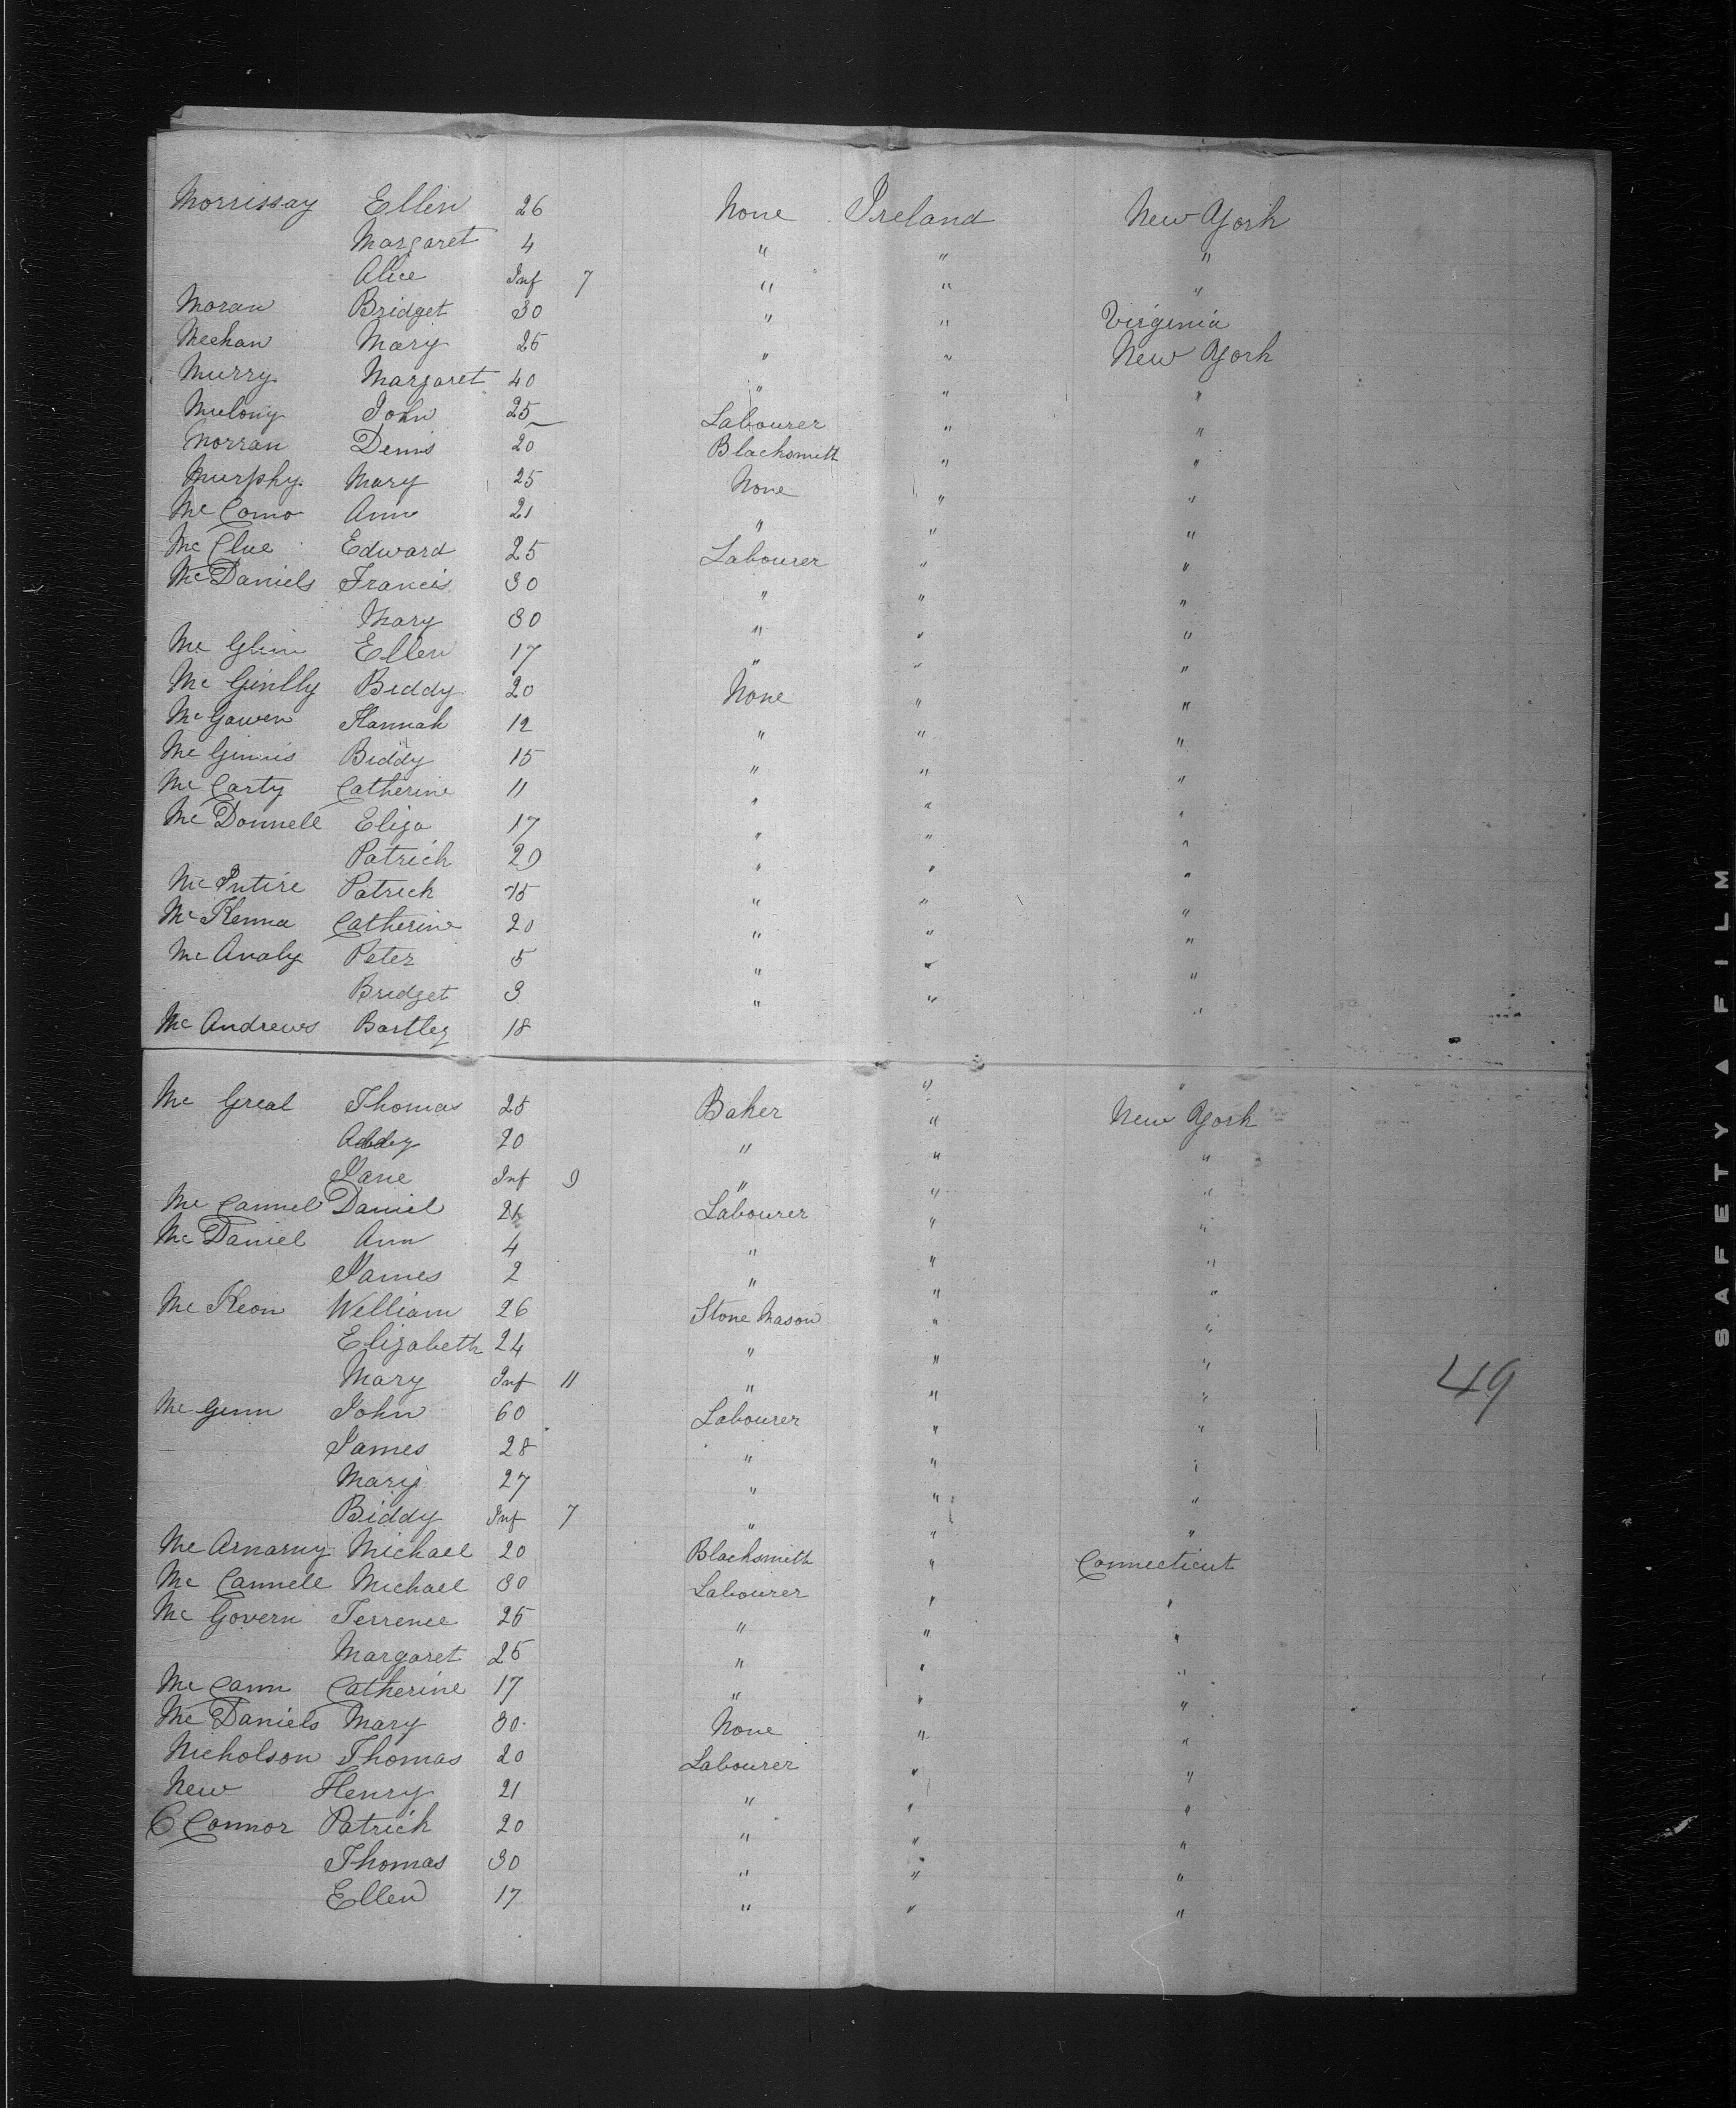 Morrissay Ellen 26 None Ireland New York
Margaret 4 " " "
Alice Inf 7 " " "
Moran Bridget 30 " " Virginia
Meehan Mary 25 " " New York
Murry Margaret 40 " " "
Mulony John 25 Labourer " "
Morran Denis 20 Blacksmith " "
Murphy Mary 25 None " "
Mc Como Ann 21 " " "
Mc Clue Edward 25 Labourer " "
Mc Daniels Francis 30 " " "
Mary 30 " " "
Mc Glinn Ellen 17 " " "
Mc Ginlly Biddy 20 None " "
Mc Gowen Hannah 12 " " "
Mc Ginnis Biddy 15 " " "
Mc Carty Catherine 11 " " "
Mc Donnell Eliza 17 " " "
Patrick 20 " " "
Mc Intire Patrick 75 " " "
Mc Kenna Catherine 20 " " "
Mc Analy Peter 5 " " "
Bridget 3 " " "
Mc Andrews Bartley 18 " "
Mc Greal Thomas 25 Baker " New York
Abby 20 " " "
Jane Inf 9 " " "
Mc Cannel Daniel 21 Labourer " "
Mc Daniel Ann 4 " " "
James 2 " " "
Mc Keon William 26 Stone Mason " "
Elizabeth 24 " " "
Mary Inf 11 " " "
49
Mc Ginn John 60 Labourer " "
James 28 " " "
Mary 27 " " "
Biddy Inf 7 " " "
Mc Arnarny Michael 20 Blacksmith " Connecticut
Mc Cannell Michael 30 Labourer " "
Mc Govern Terrence 25 " " "
Margaret 25 " " "
Mc Cann Catherine 17 " " "
Mc Daniels Mary 30 None " "
Nicholson Thomas 20 Labourer " "
New Henry 21 " " "
O Connor Patrick 20 " " "
Thomas 30 " " "
Ellen 17 " " "
SAFETY ▲ FILM